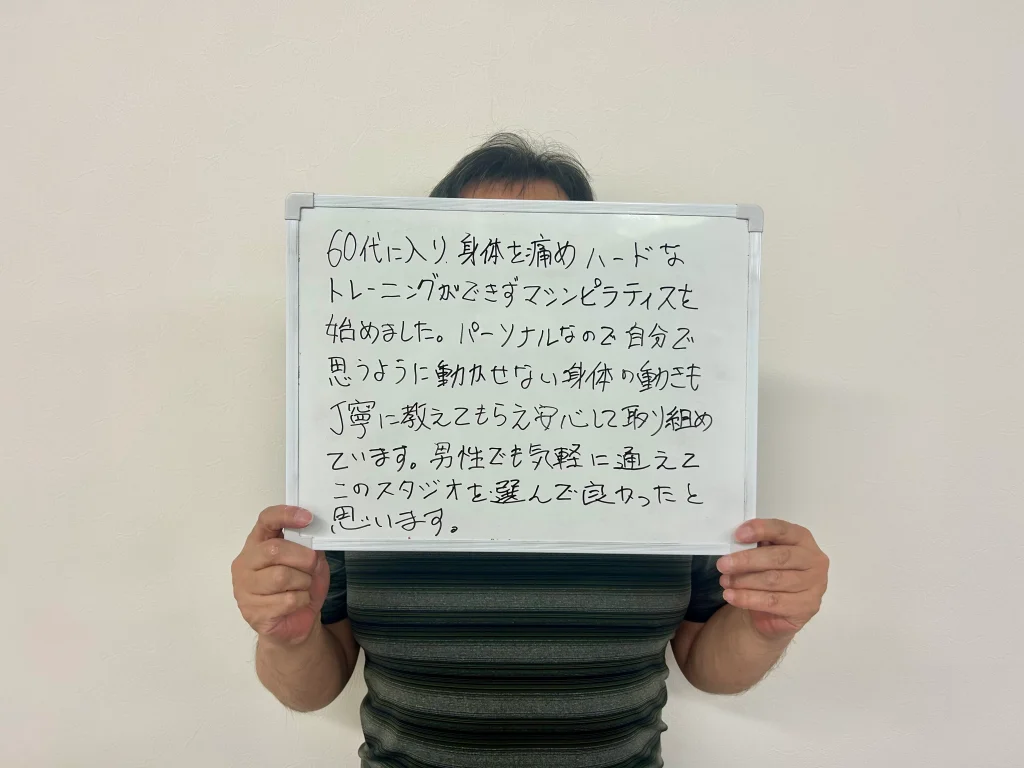 60代に入り身体を痛めハードな
トレーニングができずマシンピラティスを
始めました。パーソナルなので自分で
思うように動かせない身体の動きも
丁寧に教えてもらえ安心して取り組め
ています。男性でも気軽に通えて
このスタジオを選んで良かったと
思います。